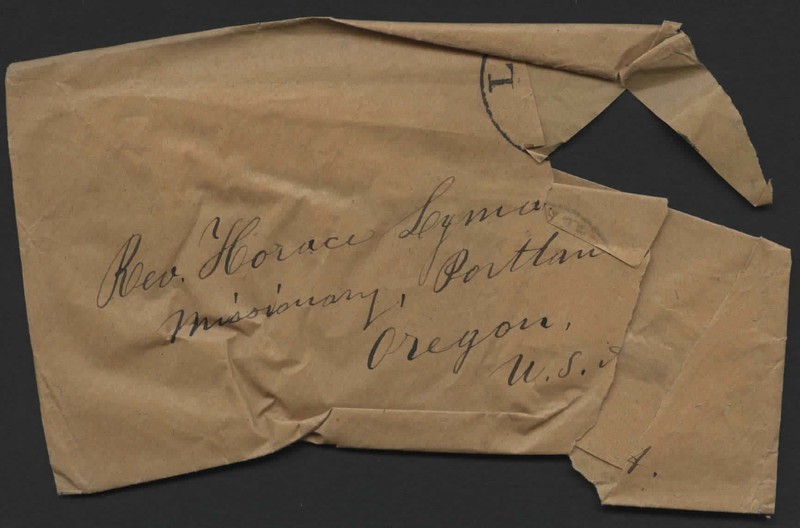 L
Rev. Horace Lyma
Missionary, Portlan
Oregon,
U.S.
A.